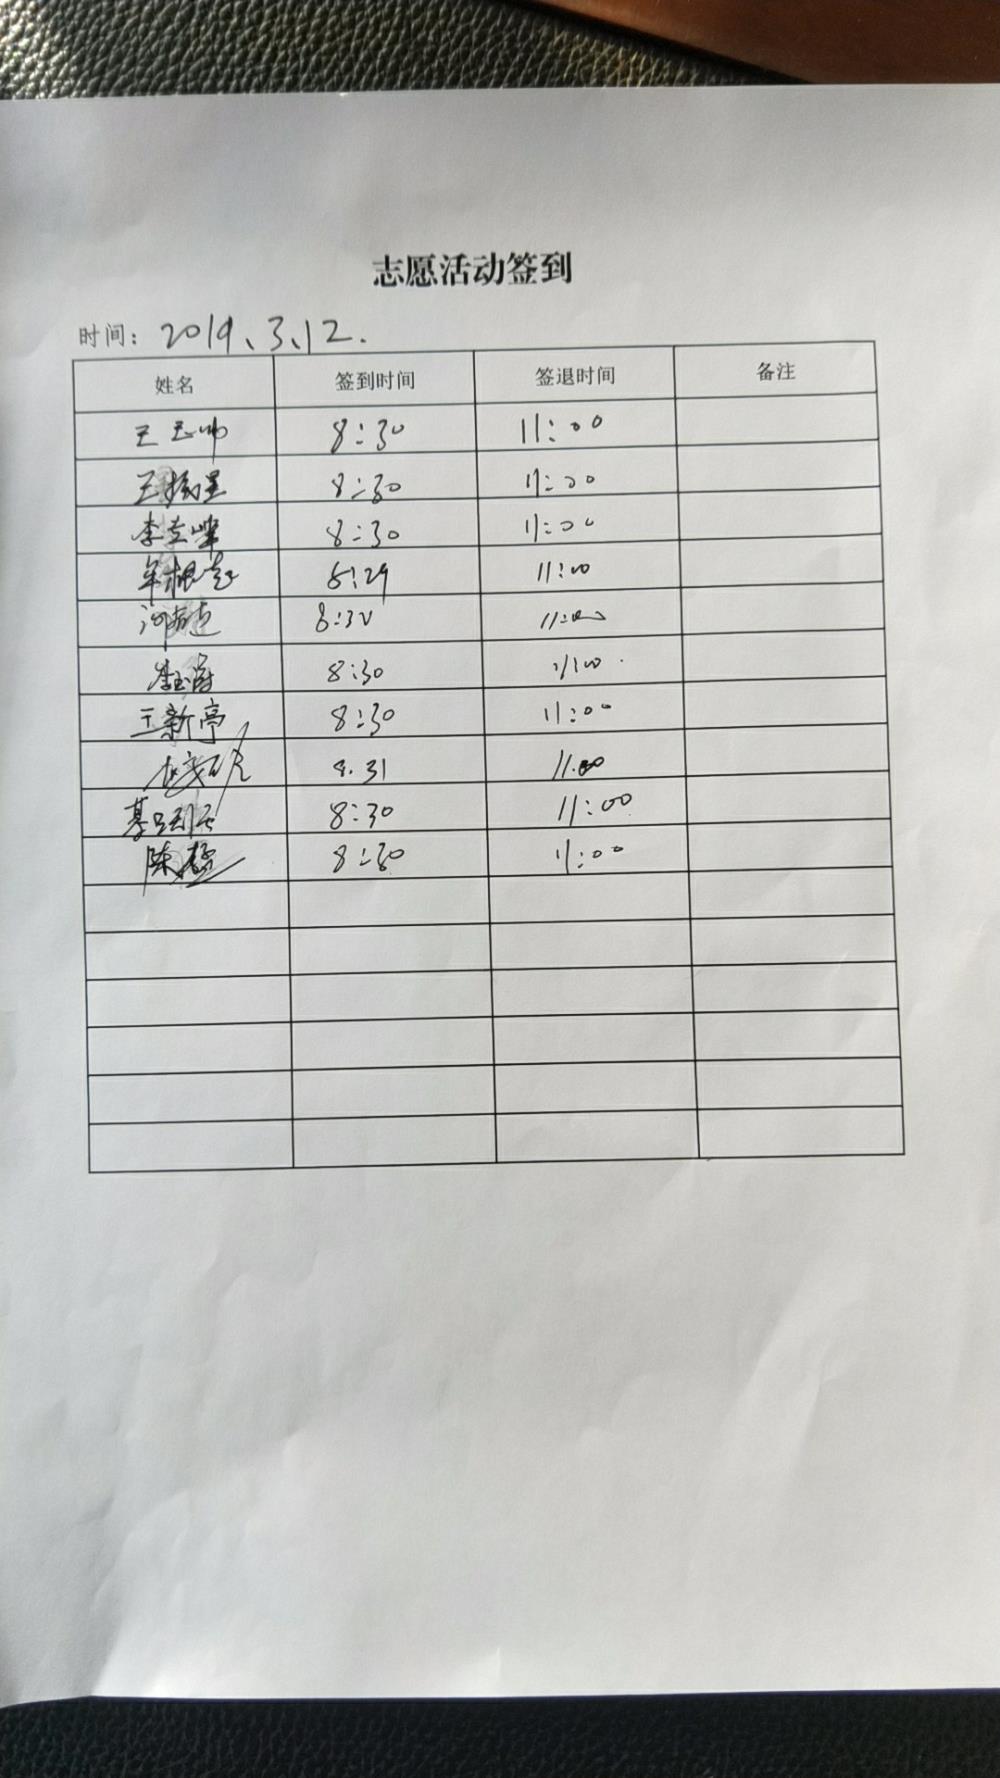 志愿活动签到
时间: 2019、3、12.
姓名 签到时间 签退时间 备注
王玉帅 8:30 11:00
王 8:30 11:00
李 8:30 11:00
牟根 8:29 11:00
8:30 11:00
李玉 8:30 11:00
王新亭 8:30 11:00
8.31 11.00
8:30 11:00
陈 8:30 11:00